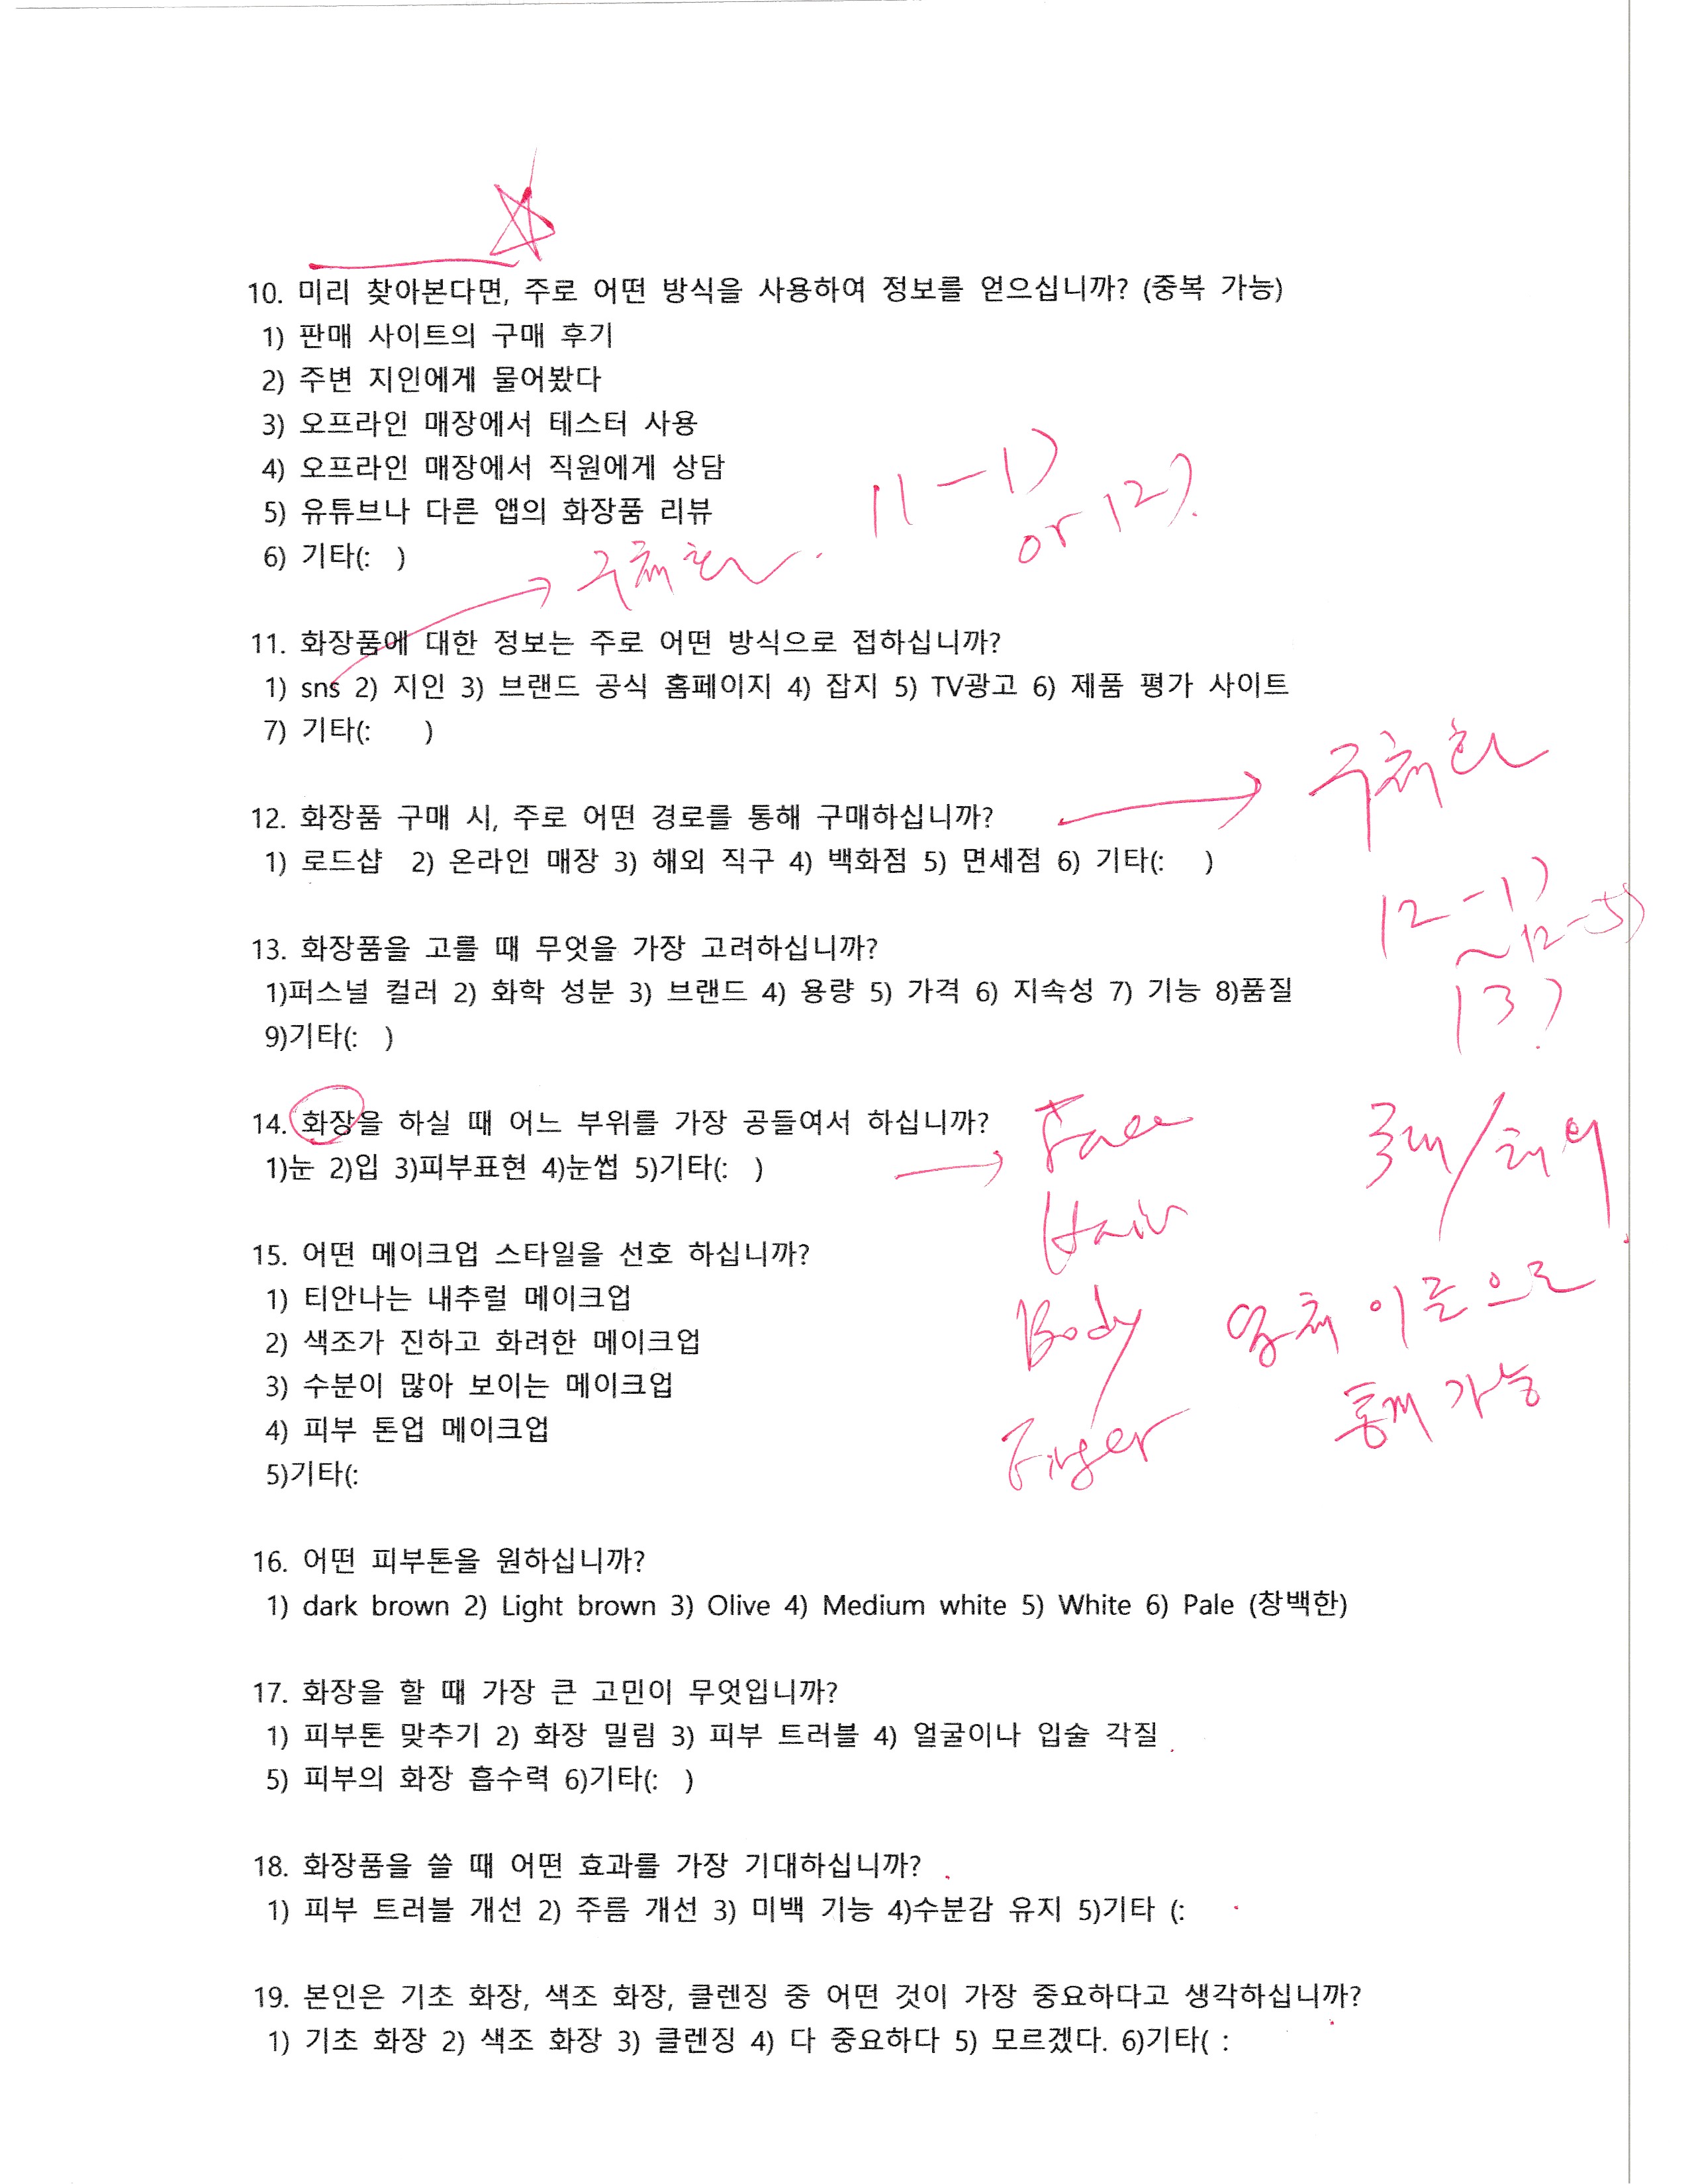 10. 미리 찾아본다면, 주로 어떤 방식을 사용하여 정보를 얻으십니까? (중복 가능)
1) 판매 사이트의 구매 후기
2) 주변 지인에게 물어봤다
3) 오프라인 매장에서 테스터 사용
4) 오프라인 매장에서 직원에게 상담
11-1)
or 12?
5) 유튜브나 다른 앱의 화장품 리뷰
6) 기타(: )
구체화.
11. 화장품에 대한 정보는 주로 어떤 방식으로 접하십니까?
1) sns 2) 지인 3) 브랜드 공식 홈페이지 4) 잡지 5) TV광고 6) 제품 평가 사이트
7) 기타(: )
구체화
12. 화장품 구매 시, 주로 어떤 경로를 통해 구매하십니까?
1) 로드샵 2) 온라인 매장 3) 해외 직구 4) 백화점 5) 면세점 6) 기타(: )
12-1)
~12-5)
13. 화장품을 고를 때 무엇을 가장 고려하십니까?
1)퍼스널 컬러 2) 화학 성분 3) 브랜드 4) 용량 5) 가격 6) 지속성 7) 기능 8)품질
13?
9)기타(: )
14. 화장을 하실 때 어느 부위를 가장 공들여서 하십니까?
Face
국내/해외
1)눈 2)입 3)피부표현 4)눈썹 5)기타(: )
Hair
15. 어떤 메이크업 스타일을 선호 하십니까?
1) 티안나는 내추럴 메이크업
Body
이름으로
2) 색조가 진하고 화려한 메이크업
3) 수분이 많아 보이는 메이크업
가능
4) 피부 톤업 메이크업
Finger
5)기타(:
16. 어떤 피부톤을 원하십니까?
1) dark brown 2) Light brown 3) Olive 4) Medium white 5) White 6) Pale (창백한)
17. 화장을 할 때 가장 큰 고민이 무엇입니까?
1) 피부톤 맞추기 2) 화장 밀림 3) 피부 트러블 4) 얼굴이나 입술 각질
5) 피부의 화장 흡수력 6)기타(: )
18. 화장품을 쓸 때 어떤 효과를 가장 기대하십니까?
1) 피부 트러블 개선 2) 주름 개선 3) 미백 기능 4)수분감 유지 5)기타 (:
19. 본인은 기초 화장, 색조 화장, 클렌징 중 어떤 것이 가장 중요하다고 생각하십니까?
1) 기초 화장 2) 색조 화장 3) 클렌징 4) 다 중요하다 5) 모르겠다. 6)기타( :